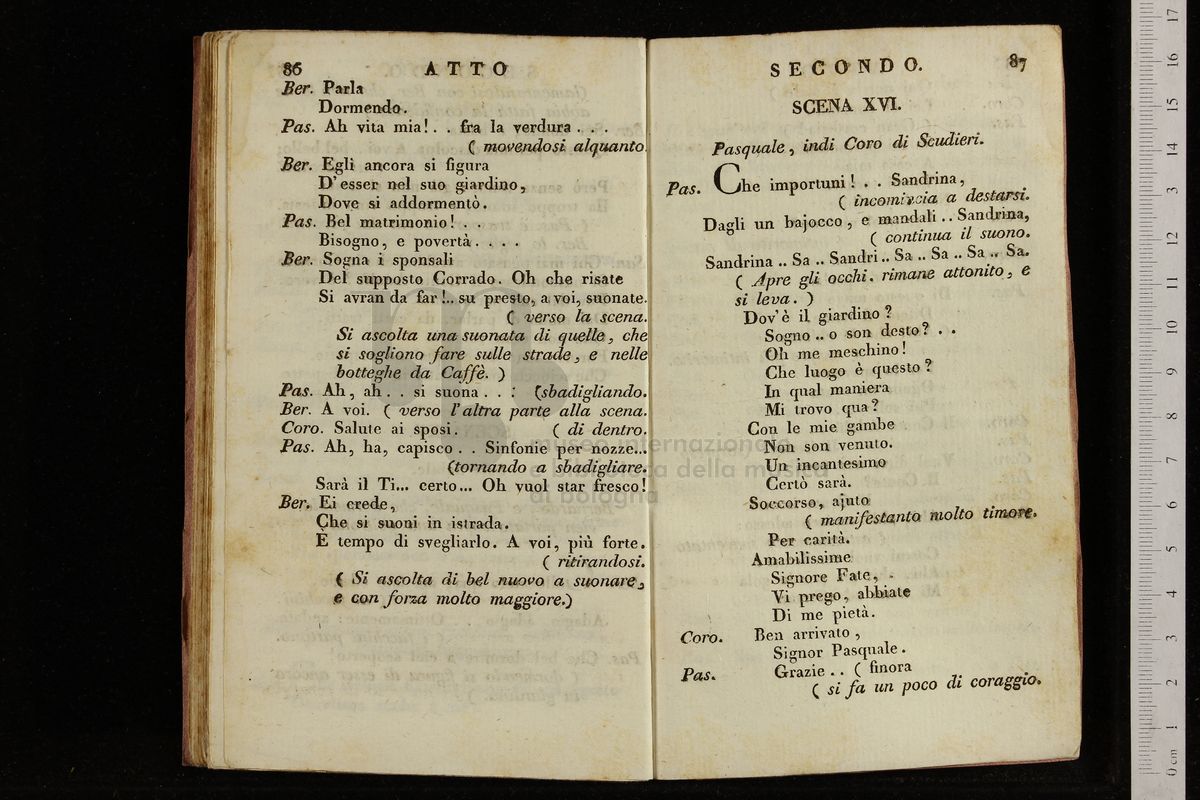 86 ATTO
Ber. Parla
Dormendo.
Pas. Ah vita mia!. . fra la verdura . . .
( movendosi alquanto.
Ber. Egli ancora si figura
D'esser nel suo giardino,
Dove si addormentò.
Pas. Bel matrimonio! . .
Bisogno, e povertà. . . .
Ber. Sogna i sponsali
Del supposto Corrado. Oh che risate
Si avran da far!.. su presto, a voi, suonate.
( verso la scena.
Si ascolta una suonata di quelle, che
si sogliono fare sulle strade, e nelle
botteghe da Caffè. )
Pas. Ah, ah . . si suona . . : (sbadigliando.
Ber. A voi. ( verso l'altra parte alla scena.
Coro. Salute ai sposi. ( di dentro.
Pas. Ah, ha, capisco . . Sinfonie per nozze...
(tornando a sbadigliare.
Sarà il Ti... certo... Oh vuol star fresco!
Ber. Ei crede,
Che si suoni in istrada.
E tempo di svegliarlo. A voi, più forte.
( ritirandosi.
( Si ascolta di bel nuovo a suonare,
e con forza molto maggiore.)
SECONDO. 87
SCENA XVI.
Pasquale, indi Coro di Scudieri.
Pas. Che importuni! . . Sandrina,
( incomincia a destarsi.
Dagli un bajocco, e mandali .. Sandrina,
( continua il suono.
Sandrina .. Sa .. Sandri .. Sa .. Sa .. Sa .. Sa.
( Apre gli occhi. rimane attonito, e
si leva. )
Dov'è il giardino?
Sogno .. o son desto? . .
Oh me meschino!
Che luogo è questo?
In qual maniera
Mi trovo qua?
Con le mie gambe
Non son venuto.
Un incantesimo
Certò sarà.
Soccorso, ajuto
( manifestanto molto timore.
Per carità.
Amabilissime
Signore Fate,
Vi prego, abbiate
Di me pietà.
Coro. Ben arrivato,
Signor Pasquale.
Pas. Grazie . . ( finora
( si fa un poco di coraggio.
museo internazionale
e biblioteca della musica
di bologna
0 cm 1 2 3 4 5 6 7 8 9 10 11 12 13 14 15 16 17